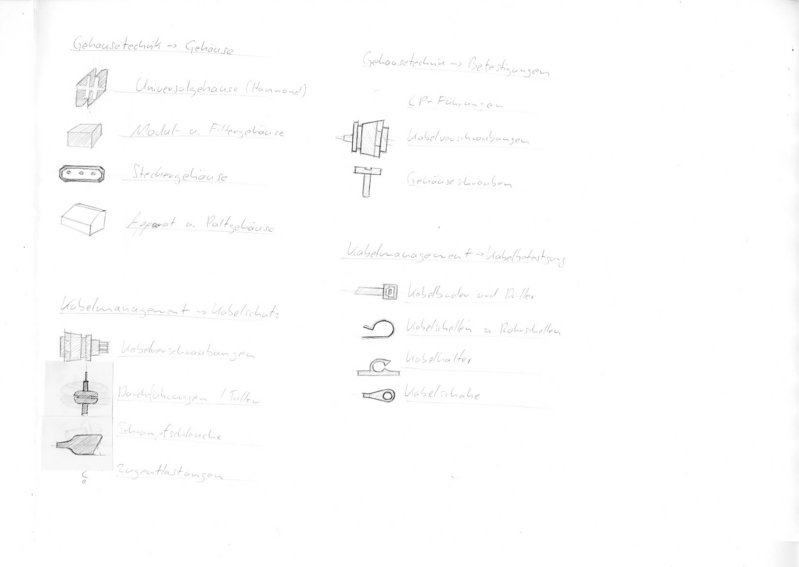 Gehäusetechnik → Gehäuse
Universalgehäuse (Hammond)
Modul- u. Filtergehäuse
Steckergehäuse
u. Pultgehäuse
Kabelmanagement → Kabelschutz
Kabelverschraubungen
Durchführungen / Tüllen
Schrumpfschläuche
Zugentlastungen
Gehäusetechnik → Befestigungen
LP-Führungen
Kabelverschraubungen
Gehäuseschrauben
Kabelmanagement → Kabelbefestigung
Kabelbinder und
Kabelschellen u Rohrschellen
Kabelhalter
Kabelschuhe